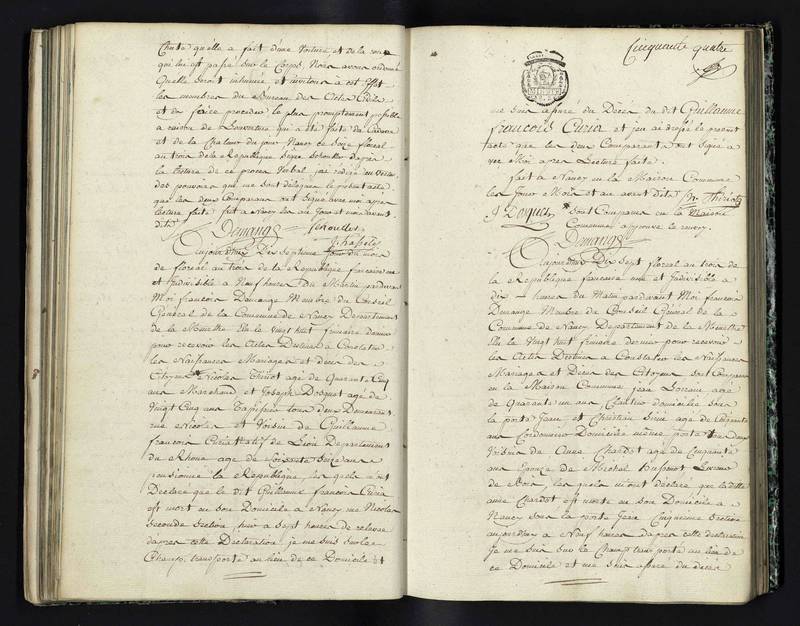 Chute qu'elle a fait d'une Voiture et de la roue
qui lui est passé sur le Corps, Nous avons ordonné
Quelle seront inhumée et invitons à cet Effet
les membres du Bureau des Actes Civils
et de faire proceder le plus promptement possible
a raison de l'ouverture qui a été faite du Cadavre
et de la Chaleur du jour Nancy ce seize floreal
au trois de la Republique Signé Schouller dapres
la lecture de ce proces Verbal j'ai redigé en vertu
des pouvoirs qui me sont délégués le présent acte
que les deux Comparans ont Signé avec moi apres
lecture faite fait a Nancy les an Jour et mois avant
dits
Demange
Aujourdhuy Dix Septieme Jour du mois
de floréal an trois de la République francaise une
et Indivisible a Neuf heures Du Matin pardevant
Moi francois Demange Membre du Conseil
Général de la Commune de Nancy Département
de la Meurthe Elu le Vingt huit frimaire dernier
pour recevoir les Actes Destinés a Constater
les Naissances Mariages et deces des
Citoyens Nicolas Thiriot agé de Quarante Cinq
ans Marchand et Joseph Dosquet agé de
Vingt Cinq ans Tapissier tous deux Demeurant
rue Nicolas et Voisins de Guillaume
francois Curia natif de Lion Departement
du Rhone age de Soixante Seize ans
Pensionné la République, les quels m'ont
Declaré que le dit Guillaume francois Curia
est mort en son Domicile a Nancy rue Nicolas
Seconde Section, hier a Sept heures de relevée
dapres cette Declaration je me suis sur le
Champ, transporté au lieu de ce Domicile et
Cinquante quatre
me suis assuré du Décès du dit Guillaume
francois Curia et j'en ai dressé le present
acte que les deux Comparants ont Signé a
vec Moi apres Lecture faite.
fait a Nancy en la Maison Commune
les Jour Mois et an avant dits N. Thiriot
J Dosquet sont Comparus en la Maison
Commune approuvé le renvoy.
Demange
Aujourdhuy Dix Sept floréal an trois de
la République francaise une et Indivisible a
dix heures du Matin pardevant Moi francois
Demange Membre du Conseil Général de la
Commune de Nancy Departement de la Meurthe
Elu le Vingt huit frimaire dernier pour recevoir
les Actes Destinés a Constater les Naissances
Mariages et Décès des Citoyens sont Comparus
en la Maison Commune jean Lorrain agé
de Quarante un ans domicilié sous
la porte Jean et Chrétien agé de Cinquante
ans Cordonnier Domicilié même porte tous deux
Voisins de Anne Chardot agée de Cinquante
ans Epouze de Michel
de Bois, les quels m'ont declaré que la ditte
anne Chardot est morte en son Domicile a
Nancy sous la porte Jean Cinquieme Section
aujourdhuy a Neuf heures dapres cette declaration
Je me suis sur le Champ transporté au lieu de
ce Domicile et me suis assuré du deces